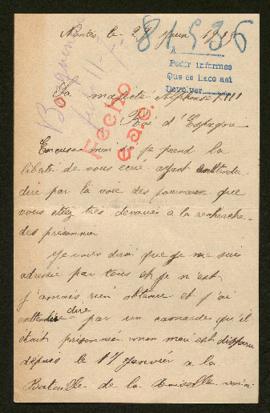 Nantes le 28 Juin 1915
81536
Pedir informes
Que se hace así
Devolver
Sa magesté Alphonse XIII
Roi d'Espagne
Hecho
e.a.c.
Excusez moi si je prend la
liberté de vous écrire ayant entendu
dire par la voix des journaux que
vous etiez très devoués a la recherche
des prisonnier
je vous dirai que je me suis
adressé par tous et je n'est
jamais rien obtenue et j'ai
entendue dire par un camarade qu'il
était prisonnier mon mari est disparu
depuis le 17 Janvier a la
Bataille de la Boisselle